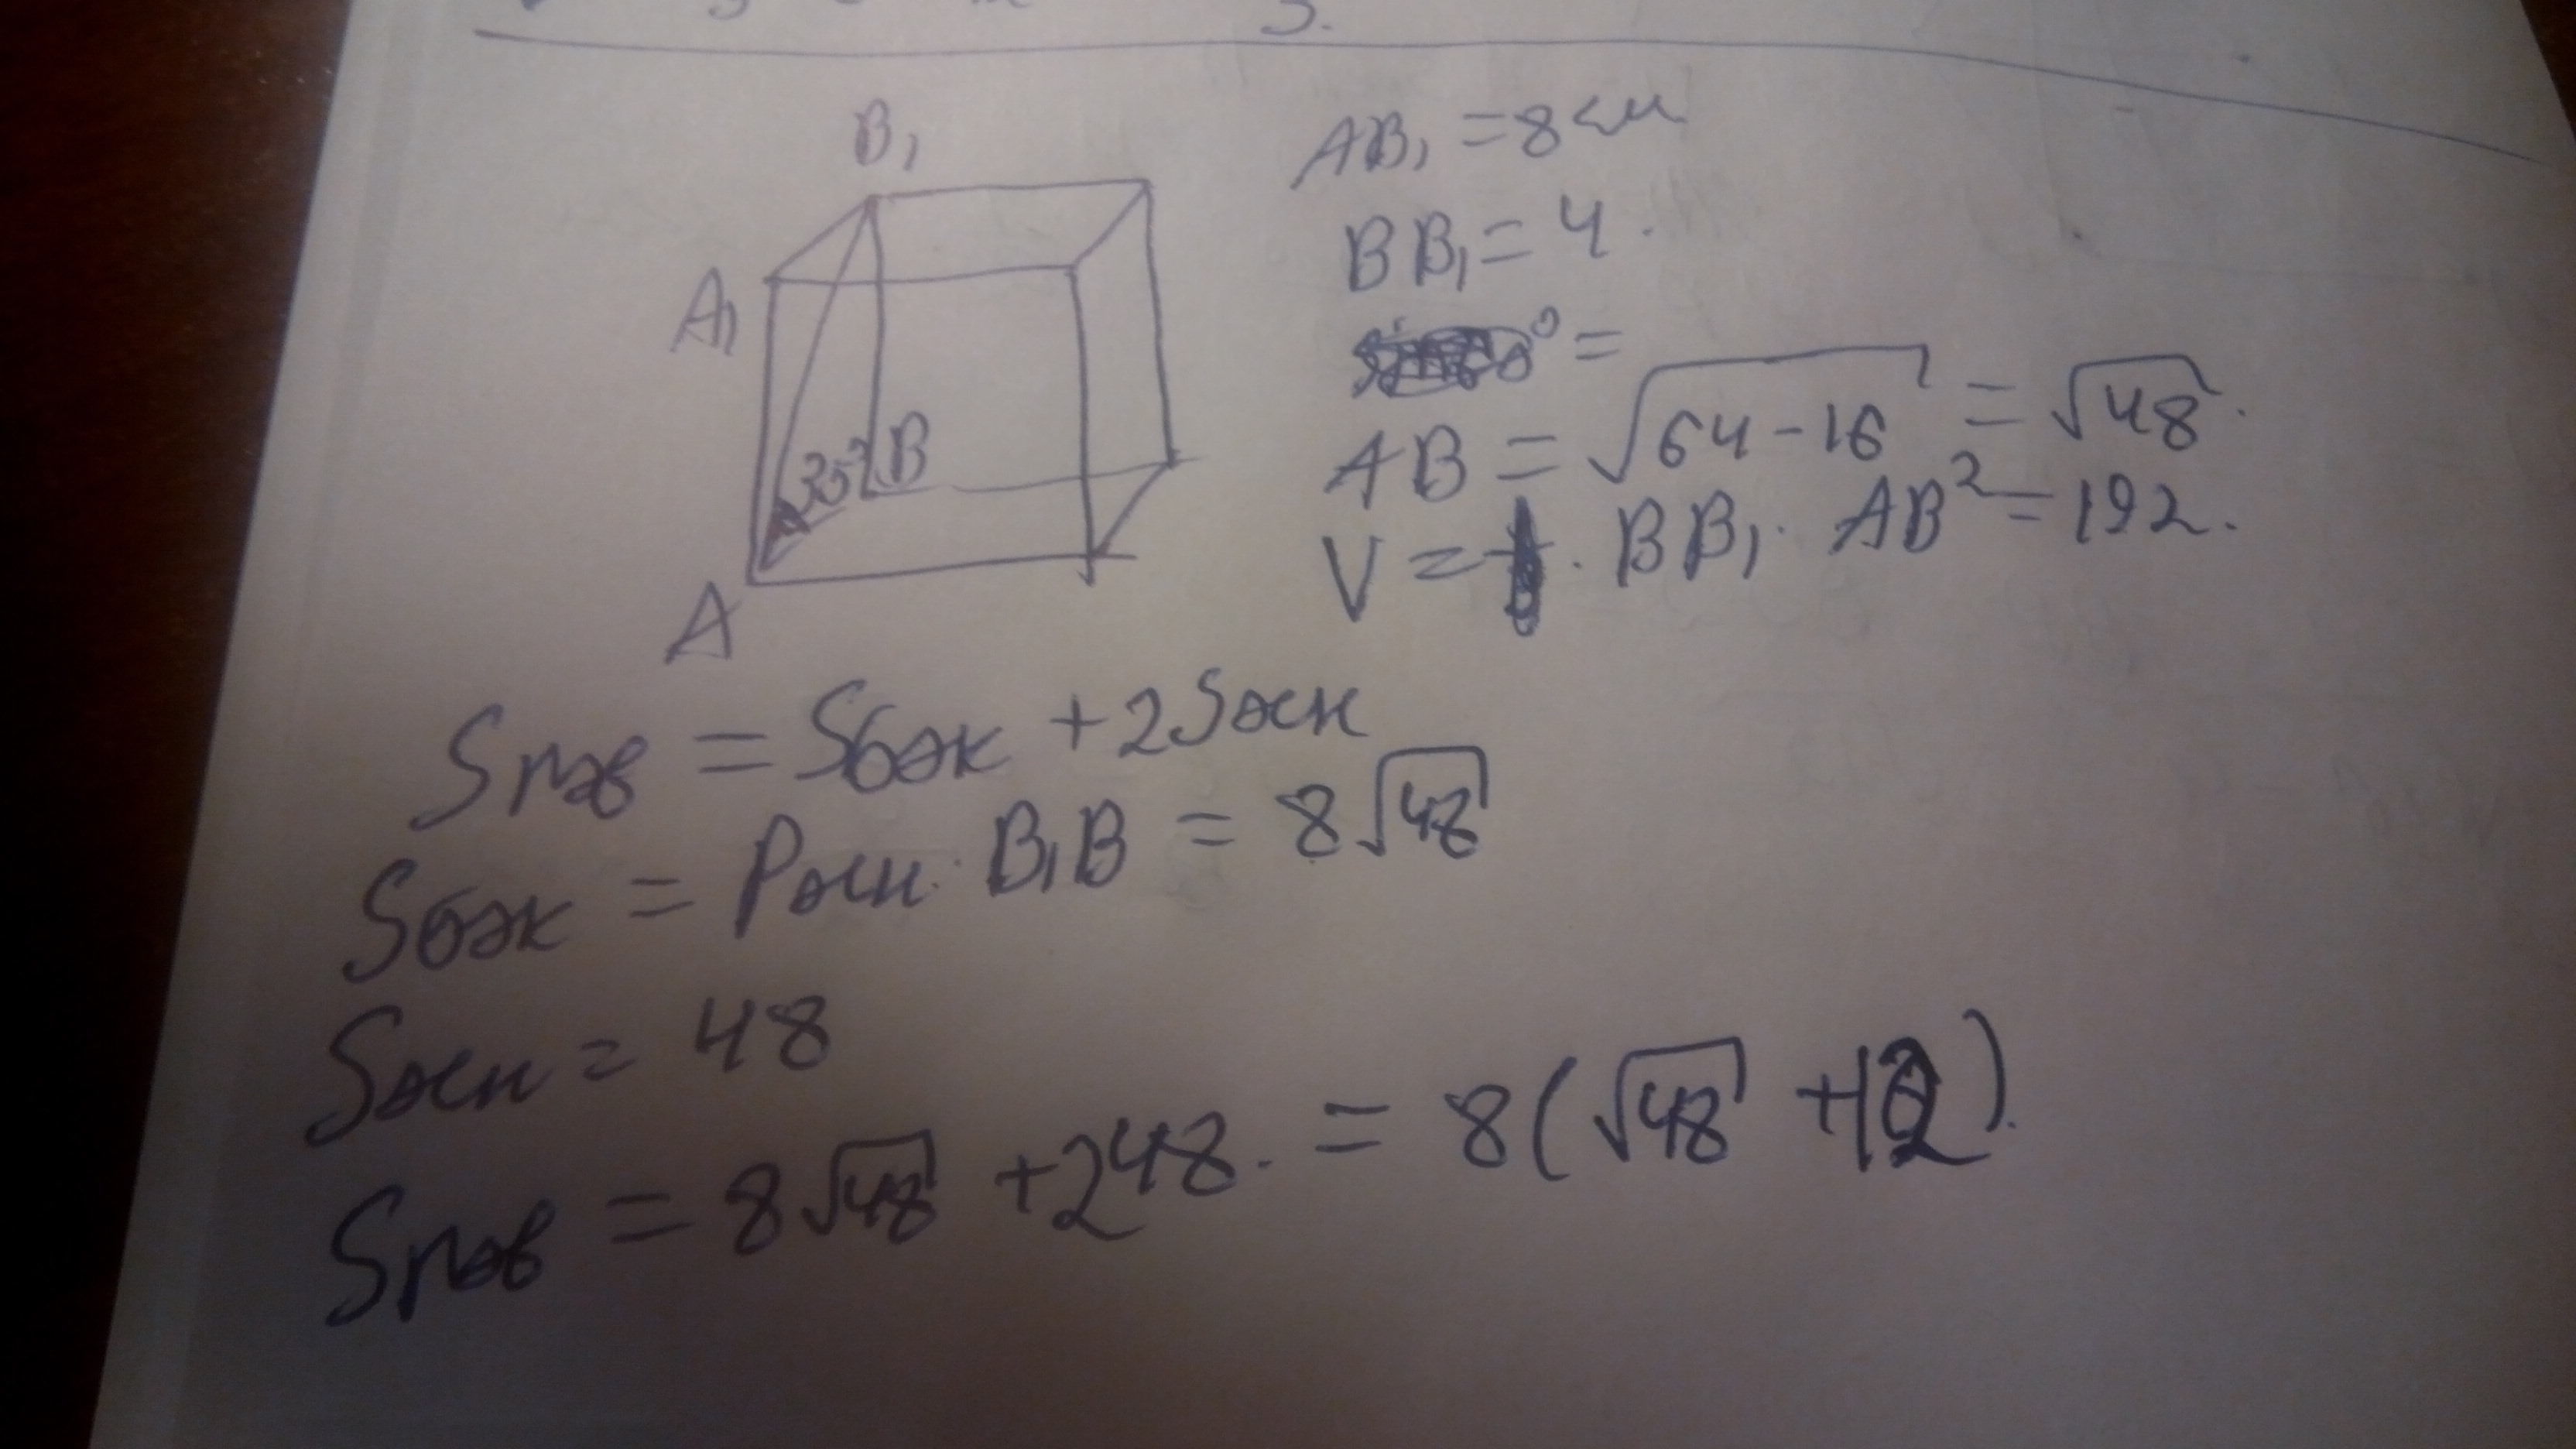 B₁
A₁
B
A
AB₁ = 8 см
BB₁ = 4.
° =
AB = √64-16 = √48.
V = · BB₁ · AB² = 192.
Sпов = Sбок + 2Sосн
Sбок = Pосн · B₁B = 8√48
Sосн = 48
Sпов = 8√48 + 2 48. = 8(√48 + 12).